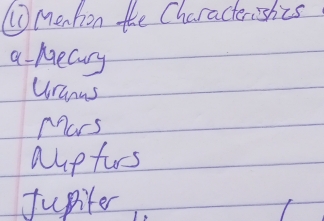 (ii) Mention the Characteristics
a - Mecury
Uranus
Mars
Nupturs
Jupiter